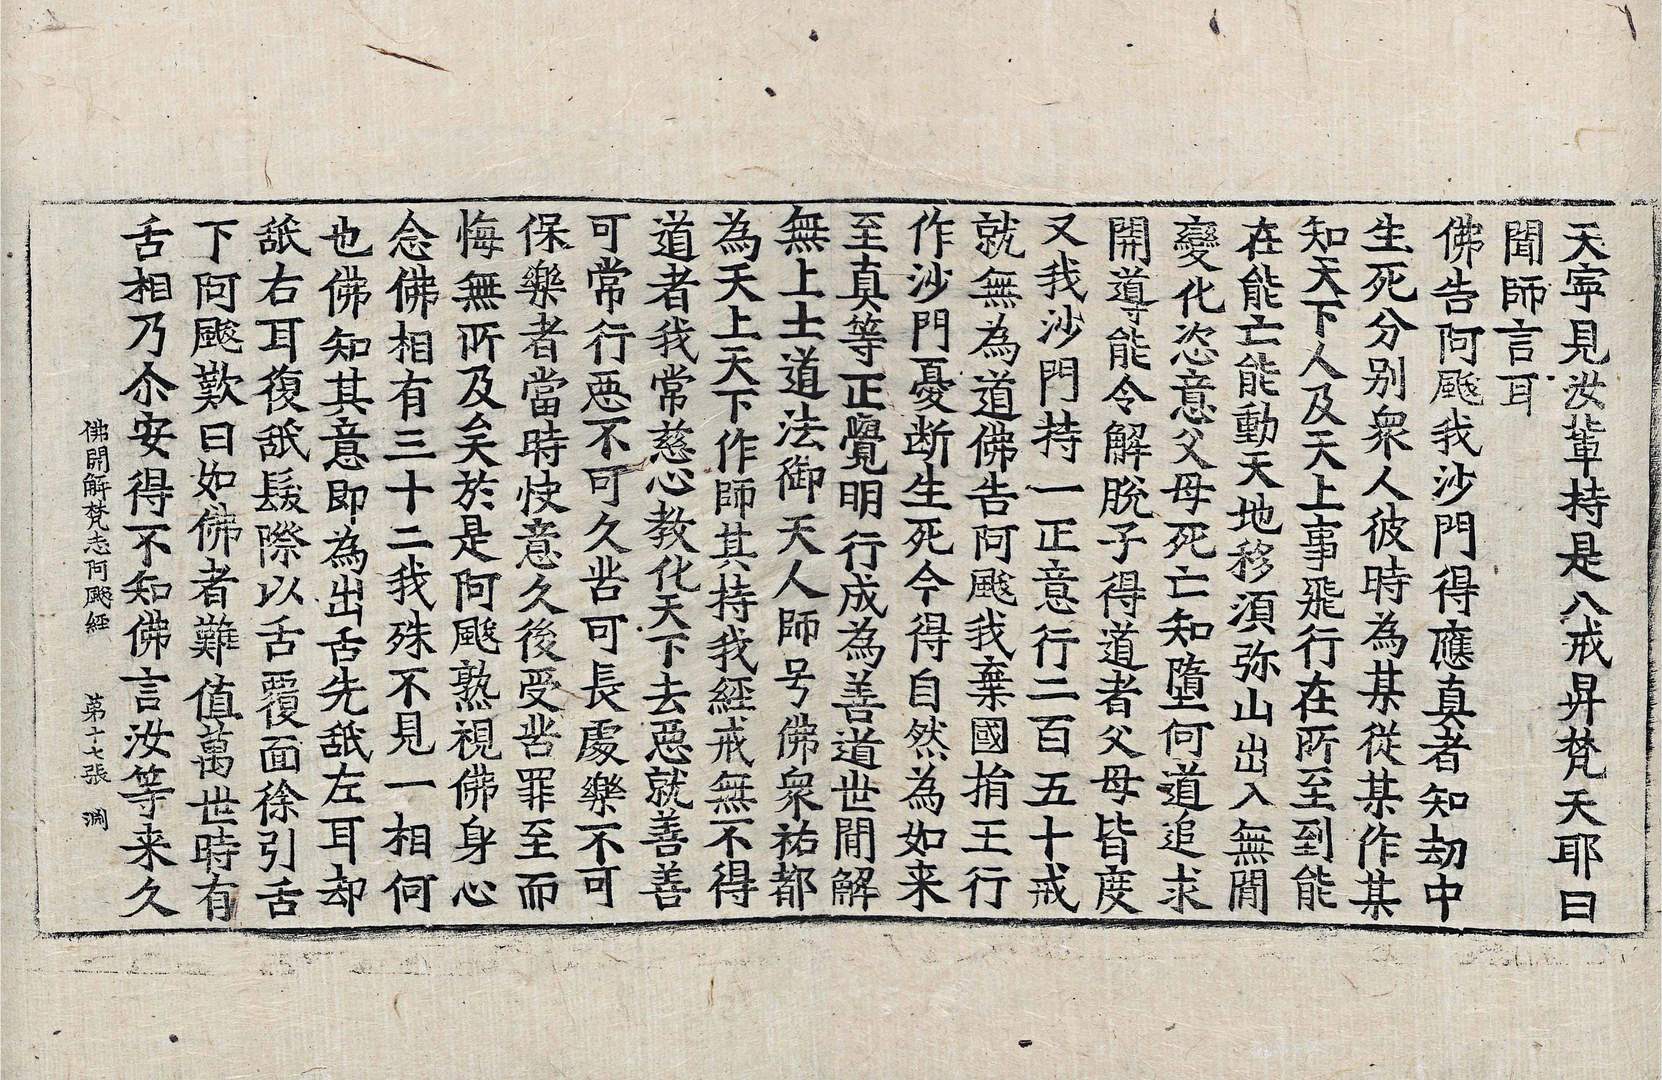 天寧見汝輩持是八戒昇梵天耶曰
聞師言耳
佛告阿颰我沙門得應真者知劫中
生死分別衆人彼時為某從某作某
知天下人及天上事飛行在所至到能
在能亡能動天地移須弥山出入無閒
變化恣意父母死亡知墮何道追求
開導能令解脫子得道者父母皆度
又我沙門持一正意行二百五十戒
就無為道佛告阿颰我棄國捐王行
作沙門憂断生死今得自然為如来
至真等正覺明行成為善道世閒解
無上士道法御天人師号佛衆祐都
為天上天下作師其持我經戒無不得
道者我常慈心教化天下去惡就善善
可常行惡不可久苦可長處樂不可
保樂者當時快意久後受苦罪至而
悔無所及矣於是阿颰熟視佛身心
念佛相有三十二我殊不見一相何
也佛知其意即為出舌先舐左耳却
舐右耳復舐髮際以舌覆面徐引舌
下阿颰歎曰如佛者難值萬世時有
佛開解梵志阿颰經 第十七張 淵
舌相乃尒安得不知佛言汝等来久